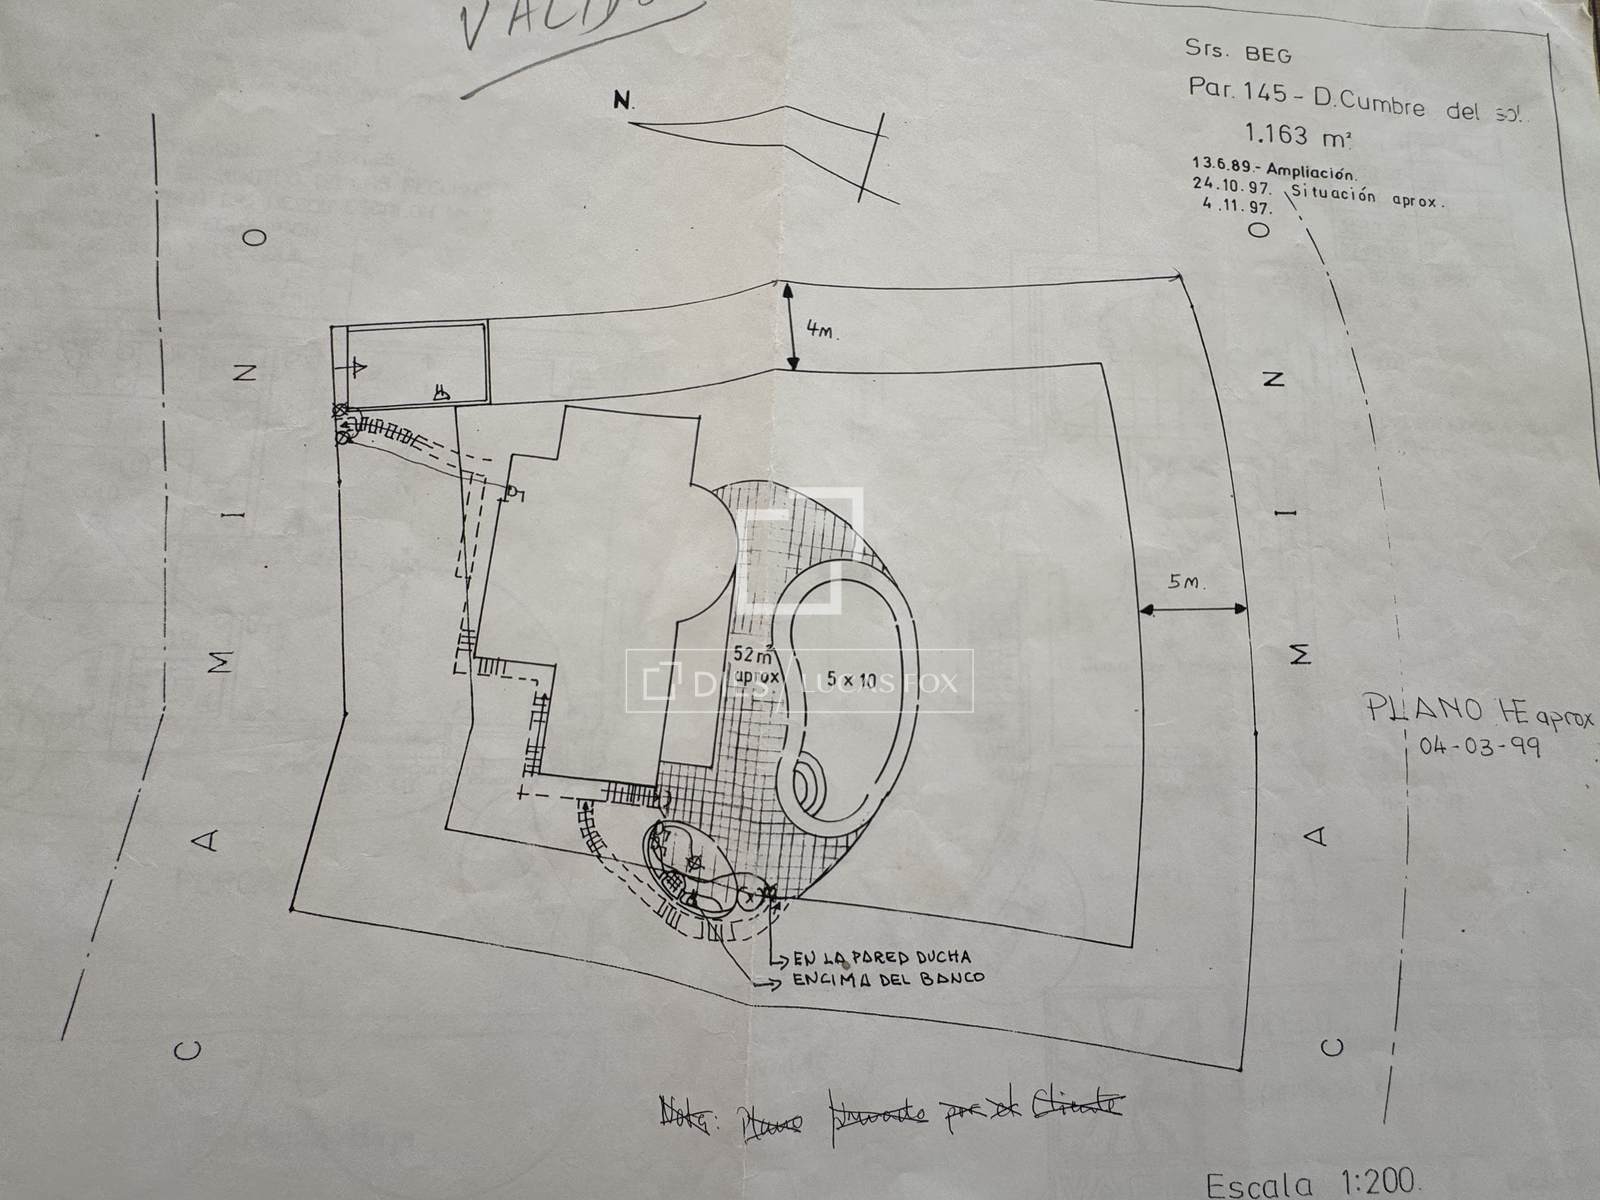 VALIDO
N.
Srs. BEG
Par. 145 - D.Cumbre del sol.
1.163 m²
13.6.89.- Ampliación.
24.10.97. Situación aprox.
4.11.97.
4m.
5m.
CAMINO
CAMINO
52 m²
aprox
5 x 10
DILS / LUCAS FOX
PLANO HE aprox
04-03-99
EN LA PARED DUCHA
ENCIMA DEL BANCO
Nota: Plano firmado por el Cliente
Escala 1:200.